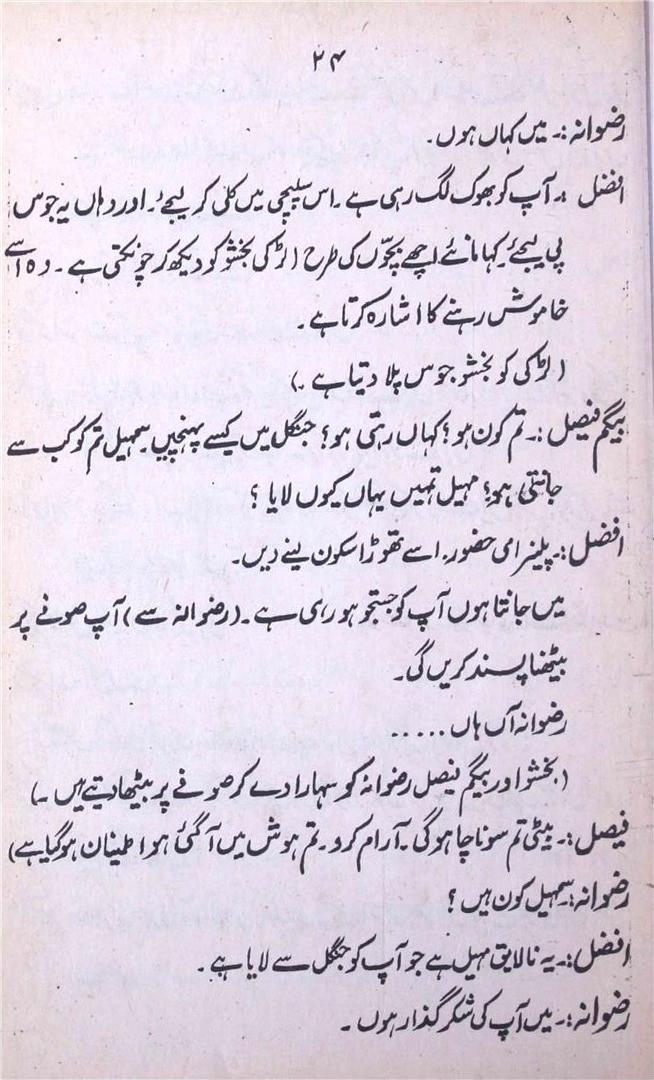 ۲۴
رضوانہ:۔ میں کہاں ہوں۔
افضل:۔ آپ کو بھوک لگ رہی ہے۔ اس سلپچی میں کلی کر لیجئے۔ اور وہاں یہ جوس
پی لیجئے۔ کہا مانئے اچھے بچوں کی طرح (لڑکی بخشو کو دیکھ کر چونکتی ہے۔ وہ اسے
خاموش رہنے کا اشارہ کرتا ہے۔
(لڑکی کو بخشو جوس پلا دیتا ہے۔)
بیگم فیصل:۔ تم کون ہو؟ کہاں رہتی ہو؟ جنگل میں کیسے پہنچیں۔ سہیل تم کو کب سے
جانتی ہو؟ سہیل تمہیں یہاں کیوں لایا؟
افضل:۔ پلیز امی حضور۔ اسے تھوڑا سکون لینے دیں۔
میں جانتا ہوں آپ کو جستجو ہو رہی ہے۔ (رضوانہ سے) آپ صوفے پر
بیٹھنا پسند کریں گی۔
رضوانہ آں ہاں .....
(بخشو اور بیگم فیصل رضوانہ کو سہارا دے کر صوفے پر بیٹھا دیتے ہیں۔)
فیصل:۔ بیٹی تم سونا چاہو گی۔ آرام کرو۔ تم ہوش میں آ گئی ہو اطمینان ہو گیا ہے)
رضوانہ:۔ سہیل کون ہیں؟
افضل:۔ یہ نالایق سہیل ہے جو آپ کو جنگل سے لایا ہے۔
رضوانہ:۔ میں آپ کی شکر گذار ہوں۔